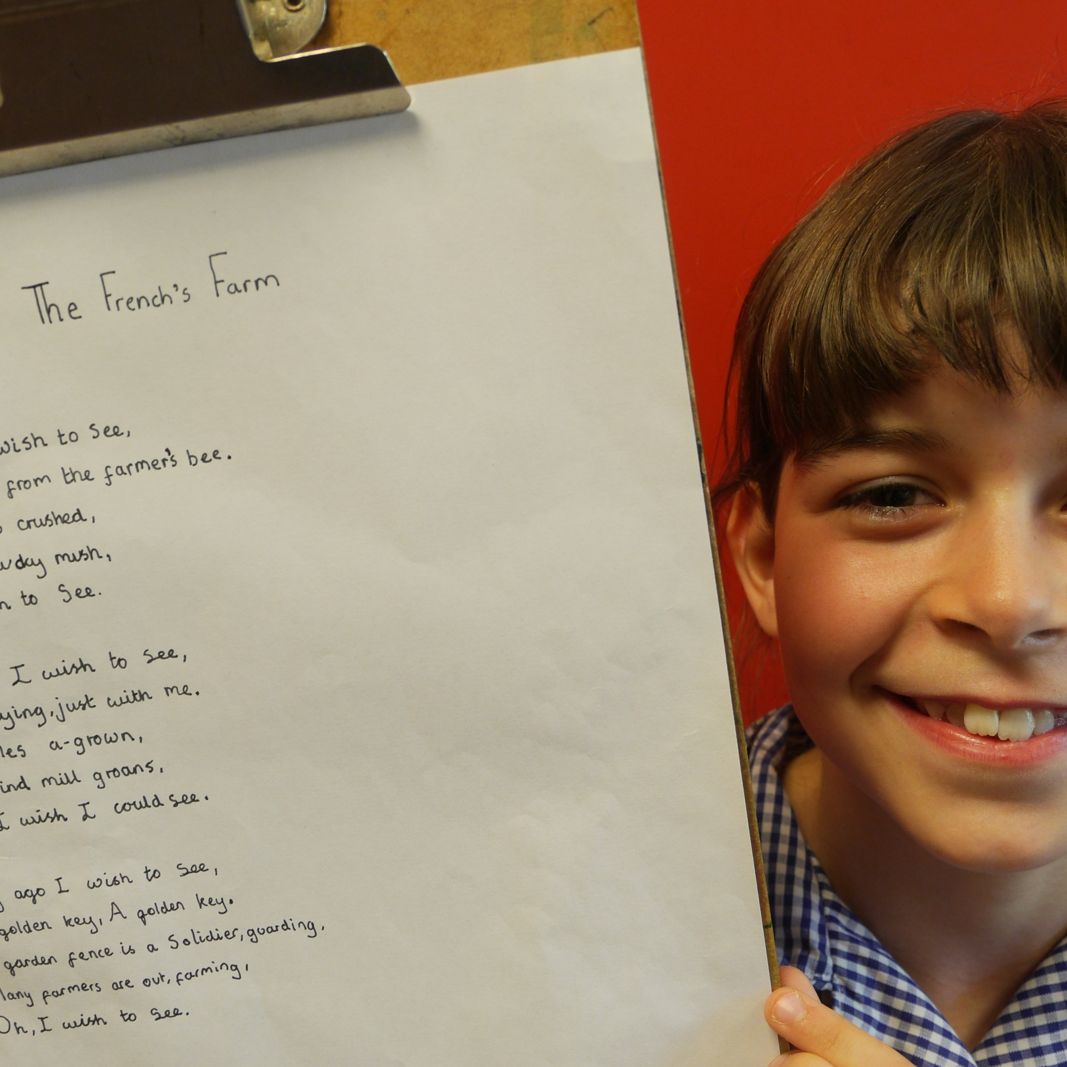 The French's Farm
wish to See,
from the farmer's bee.
crushed,
mush,
to See.
I wish to see,
just with me.
a-grown,
mill groans,
I wish I could see.
ago I wish to see,
golden key, A golden key.
garden fence is a Solidier, guarding,
farmers are out, farming,
Oh, I wish to see.